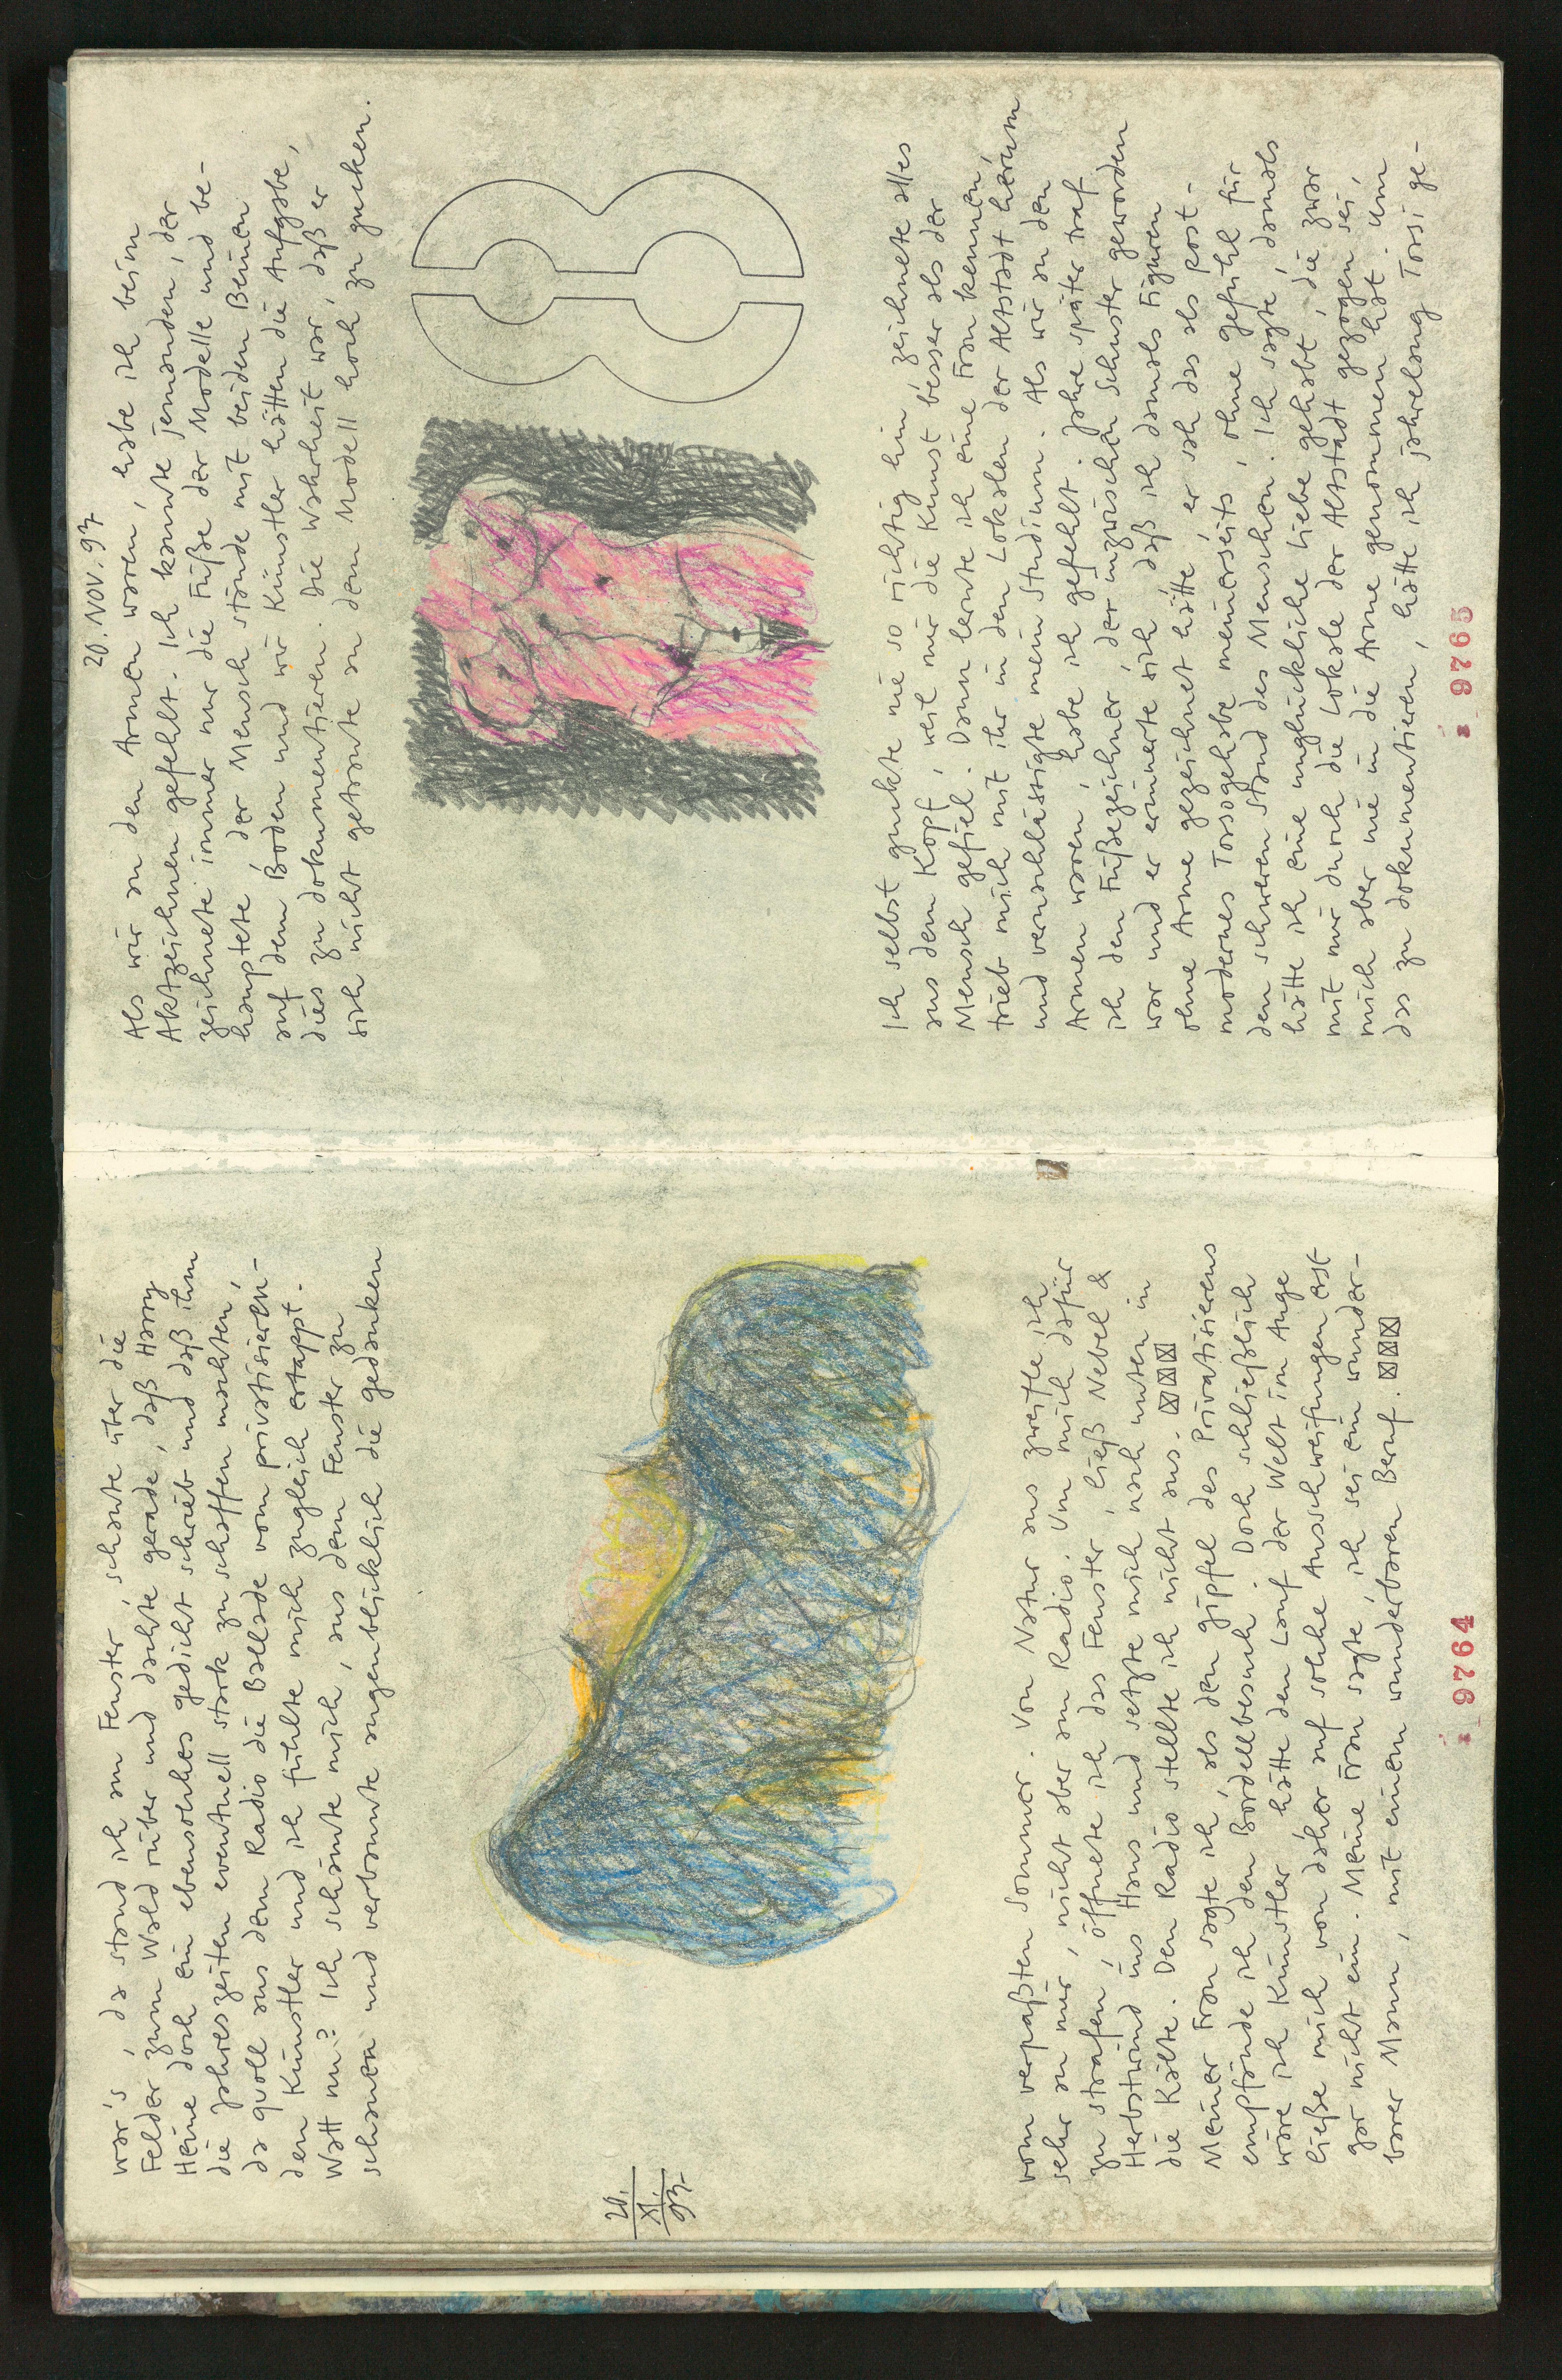 war's, da stand ich am Fenster, schaute über die
Felder zum Wald rüber und dachte gerade, daß Harry
Heine doch ein ebensolches gedicht schrieb und daß ihm
die Jahreszeiten eventuell stark zu schaffen machten,
da quoll aus dem Radio die Ballade vom privatisieren-
den Künstler und ich fühlte mich zugleich ertappt.
Watt nu? Ich schämte mich, aus dem Fenster zu
schauen und verbannte augenblicklich die gedanken
20.
XI.
93
vom verpaßten Sommer. Von Natur aus zweifle ich
sehr an mir, nicht aber am Radio. Um mich dafür
zu strafen, öffnete ich das Fenster, ließ Nebel &
Herbstwind ins Haus und setzte mich nach unten in
die Kälte. Den Radio stellte ich nicht aus.
Meiner Frau sagte ich, als den gipfel des Privatisierens
empfände ich den Bordellbesuch. Doch schließlich
wäre ich Künstler, hätte den Lauf der Welt im Auge
ließe mich von daher auf solche Ausschweifungen erst
gar nicht ein. Meine Frau sagte, ich sei ein wunder-
barer Mann, mit einem wunderbaren Beruf.
9764
20. NOV. 93
Als wir an den Armen waren, habe ich beim
Aktzeichnen gefehlt. Ich kannte jemanden, der
zeichnete immer nur die Füße der Modelle und be-
hauptete, der Mensch stünde mit beiden Beinen
auf dem Boden und wir Künstler hätten die Aufgabe,
dies zu dokumentieren. Die Wahrheit war, daß er
sich nicht getraute an dem Modell hoch zu gucken.
Ich selbst guckte nie so richtig hin, zeichnete alles
aus dem Kopf, weil mir die Kunst besser als der
Mensch gefiel. Dann lernte ich eine Frau kennen,
trieb mich mit ihr in den Lokalen der Altstadt herum
und vernachlässigte mein Studium. Als wir an den
Armen waren, habe ich gefehlt. Jahre später traf
ich den Füßezeichner, der inzwischen Schuster geworden
war und er erinnerte sich, daß ich damals Figuren
ohne Arme gezeichnet hätte, er sah das als post-
modernes Torsogehabe meinerseits, ohne gefühl für
den schweren Stand des Menschen. Ich sagte, damals
hätte ich eine unglückliche Liebe gehabt, die zwar
mit mir durch die Lokale der Altstadt gezogen sei,
mich aber nie in die Arme genommen hat. Um
das zu dokumentieren, hätte ich jahrelang Torsi ge-
9765